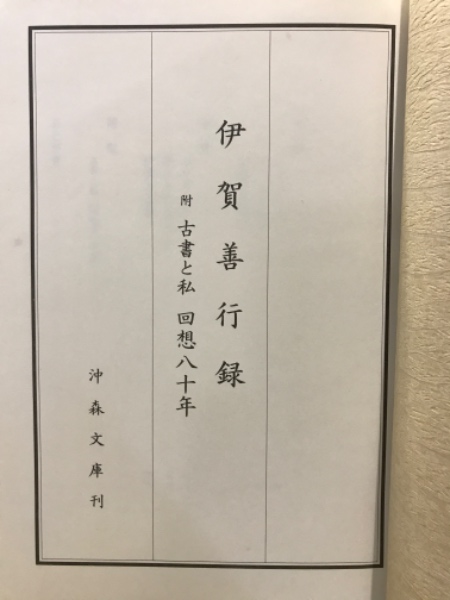 伊賀善行録
附 古書と私 回想八十年
沖森文庫刊